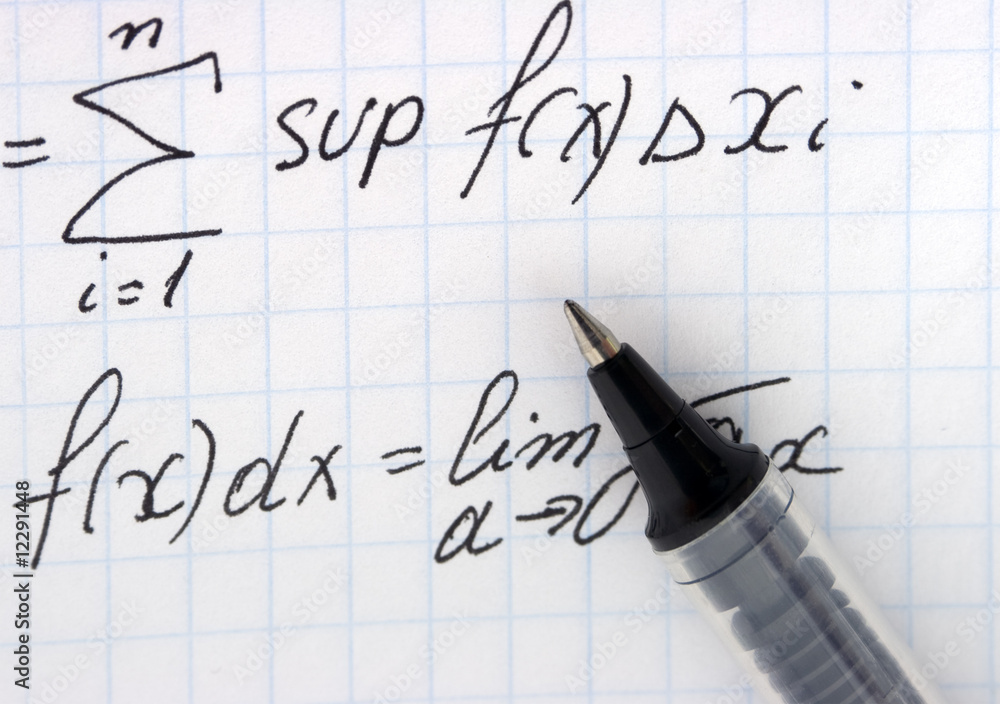 n
= ∑ sup f(x) Δ xi
i=1
f(x) dx = lim x
a → 0
Adobe Stock | #12291448